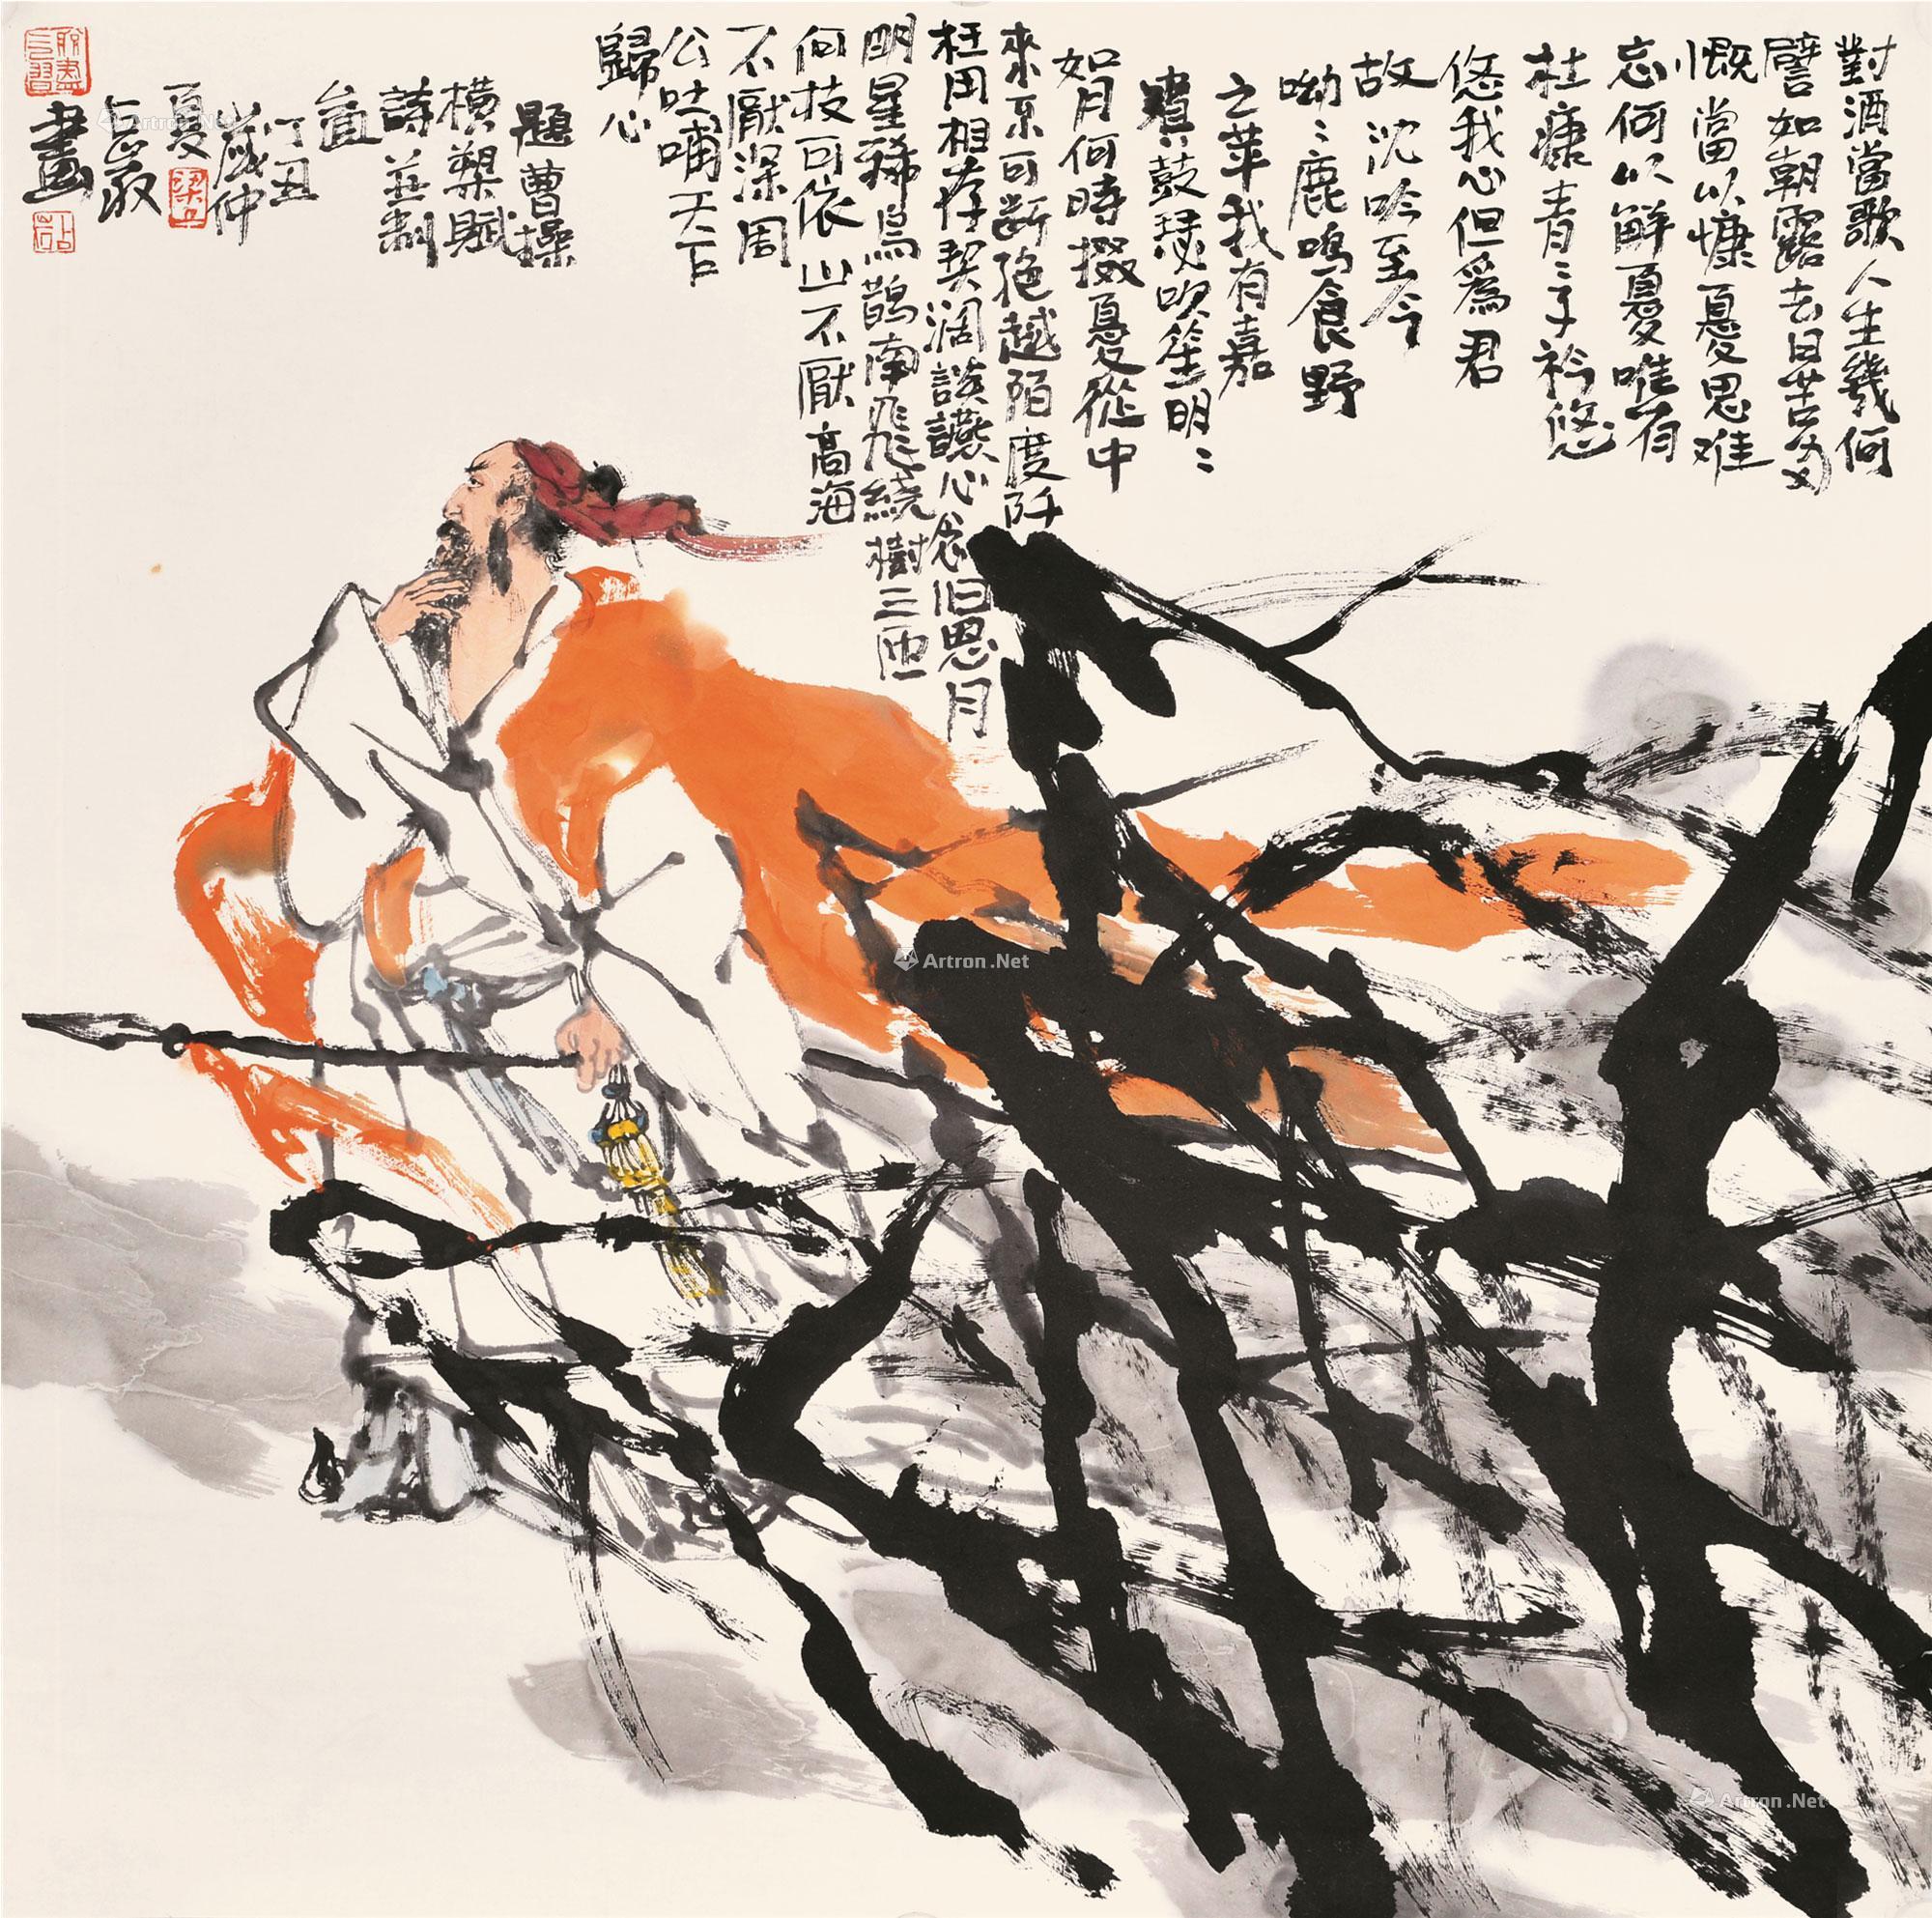 對酒當歌人生幾何
譬如朝露去日苦多
慨當以慷憂思难
忘何以解憂唯有
杜康青〻子衿悠
悠我心但爲君
故沈吟至今
呦〻鹿鳴食野
之苹我有嘉
賓鼓瑟吹笙明〻
如月何時掇憂從中
來不可断绝越陌度阡
枉用相存契阔談讌心念旧恩月
明星稀烏鵲南飛繞樹三匝
何枝可依山不厭高海
不厭深周
公吐哺天下
歸心
題曹操
橫槊賦
詩並制
畫
丁丑
歲仲
夏
占岩
畫
Artron.Net
Artron.Net
Artron.Net